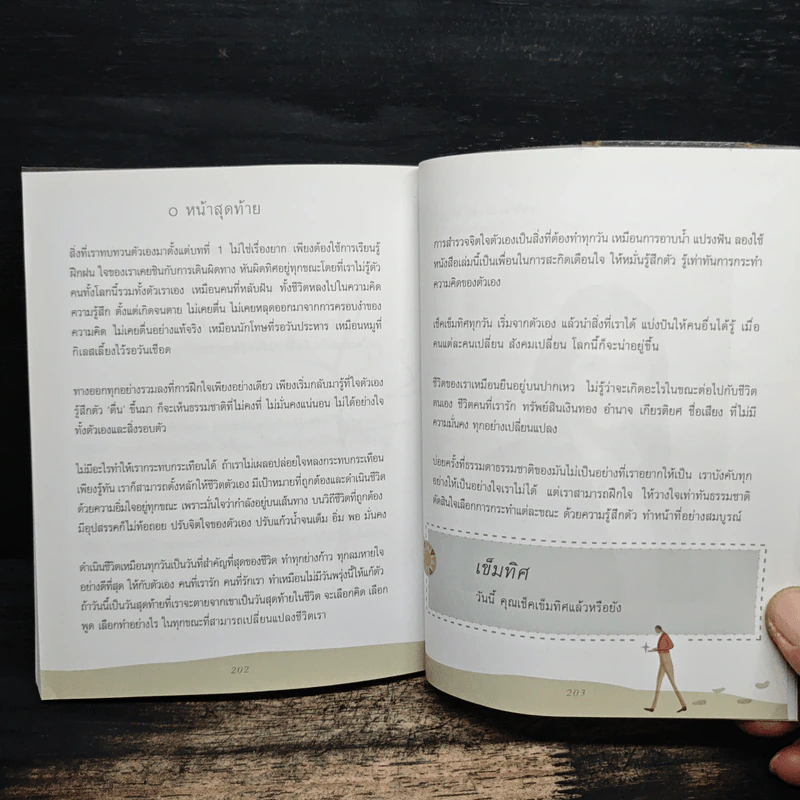 หน้าสุดท้าย
สิ่งที่เราทบทวนตัวเองมาตั้งแต่บทที่ 1 ไม่ใช่เรื่องยาก เพียงต้องใช้การเรียนรู้
ฝึกฝน ใจของเราเคยชินกับการเดินผิดทาง หันผิดทิศอยู่ทุกขณะโดยที่เราไม่รู้ตัว
คนทั้งโลกนี้รวมทั้งตัวเราเอง เหมือนคนที่หลับฝัน ทั้งชีวิตหลงไปในความคิด
ความรู้สึก ตั้งแต่เกิดจนตาย ไม่เคยตื่น ไม่เคยหลุดออกมาจากการครอบงำของ
ความคิด ไม่เคยตื่นอย่างแท้จริง เหมือนนักโทษที่รอวันประหาร เหมือนหมูที่
กิเลสเลี้ยงไว้รอวันเชือด
ทางออกทุกอย่างรวมลงที่การฝึกใจเพียงอย่างเดียว เพียงเริ่มกลับมารู้ที่ใจตัวเอง
รู้สึกตัว ‘ตื่น’ ขึ้นมา ก็จะเห็นธรรมชาติที่ไม่คงที่ ไม่มั่นคงแน่นอน ไม่ได้อย่างใจ
ทั้งตัวเองและสิ่งรอบตัว
ไม่มีอะไรทำให้เรากระทบกระเทือนได้ ถ้าเราไม่เผลอปล่อยใจหลงกระทบกระเทือน
เพียงรู้ทัน เราก็สามารถตั้งหลักให้ชีวิตตัวเอง มีเป้าหมายที่ถูกต้องและดำเนินชีวิต
ด้วยความอิ่มใจอยู่ทุกขณะ เพราะมั่นใจว่ากำลังอยู่บนเส้นทาง บนวิถีชีวิตที่ถูกต้อง
มีอุปสรรคก็ไม่ท้อถอย ปรับจิตใจของตัวเอง ปรับแก้น้ำจนเต็ม อิ่ม พอ มั่นคง
ดำเนินชีวิตเหมือนทุกวันเป็นวันที่สำคัญที่สุดของชีวิต ทำทุกย่างก้าว ทุกลมหายใจ
อย่างดีที่สุด ให้กับตัวเอง คนที่เรารัก คนที่รักเรา ทำเหมือนไม่มีวันพรุ่งนี้ให้แก้ตัว
ถ้าวันนี้เป็นวันสุดท้ายที่เราจะตายจากเขาเป็นวันสุดท้ายในชีวิต จะเลือกคิด เลือก
พูด เลือกทำอย่างไร ในทุกขณะที่สามารถเปลี่ยนแปลงชีวิตเรา
202
การสำรวจจิตใจตัวเองเป็นสิ่งที่ต้องทำทุกวัน เหมือนการอาบน้ำ แปรงฟัน ลองใช้
หนังสือเล่มนี้เป็นเพื่อนในการสะกิดเตือนใจ ให้หมั่นรู้สึกตัว รู้เท่าทันการกระทำ
ความคิดของตัวเอง
เช็คเข็มทิศทุกวัน เริ่มจากตัวเอง แล้วนำสิ่งที่เราได้ แบ่งปันให้คนอื่นได้รู้ เมื่อ
คนแต่ละคนเปลี่ยน สังคมเปลี่ยน โลกนี้ก็จะน่าอยู่ขึ้น
ชีวิตของเราเหมือนยืนอยู่บนปากเหว ไม่รู้ว่าจะเกิดอะไรในขณะต่อไปกับชีวิต
ตนเอง ชีวิตคนที่เรารัก ทรัพย์สินเงินทอง อำนาจ เกียรติยศ ชื่อเสียง ที่ไม่มี
ความมั่นคง ทุกอย่างเปลี่ยนแปลง
บ่อยครั้งที่ธรรมดาธรรมชาติของมันไม่เป็นอย่างที่เราอยากให้เป็น เราบังคับทุก
อย่างให้เป็นอย่างใจเราไม่ได้ แต่เราสามารถฝึกใจ ให้วางใจเท่าทันธรรมชาติ
ตัดสินใจเลือกการกระทำแต่ละขณะ ด้วยความรู้สึกตัว ทำหน้าที่อย่างสมบูรณ์
เข็มทิศ
วันนี้ คุณเช็คเข็มทิศแล้วหรือยัง
203